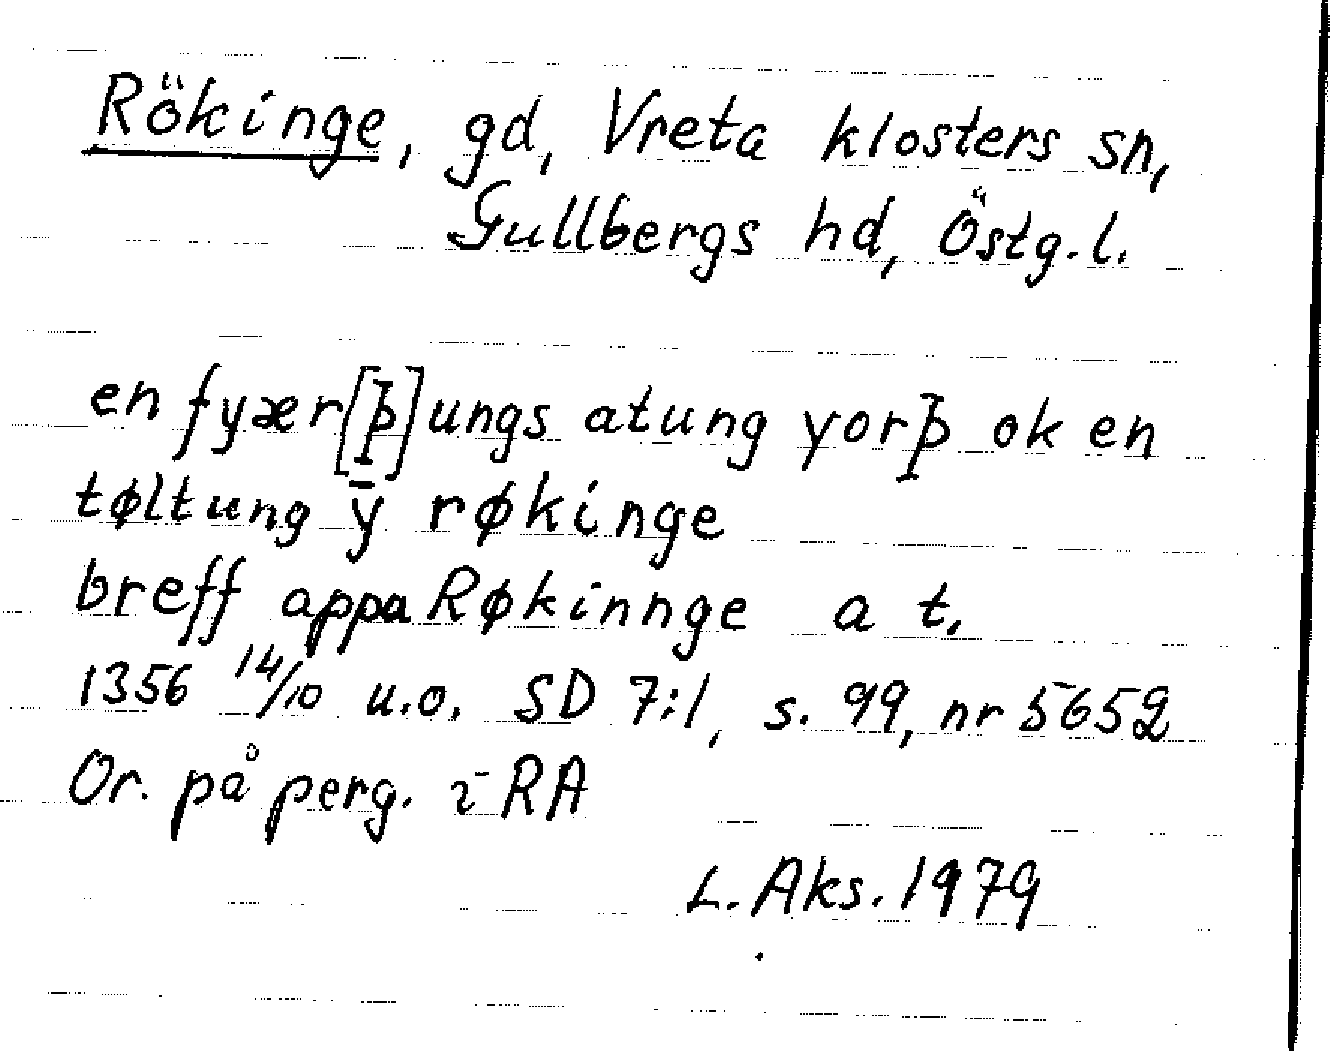 Rökinge, gd, Vreta klosters sn,
Gullbergs hd, Östg.l.
en fyær[þ]ungs atung yorþ ok en
tøltung ȳ røkinge
breff appa Røkinnge a t.
1356 14/10 u.o. SD 7:1, s. 99, nr 5652
Or. på perg. i RA
L. Aks. 1979